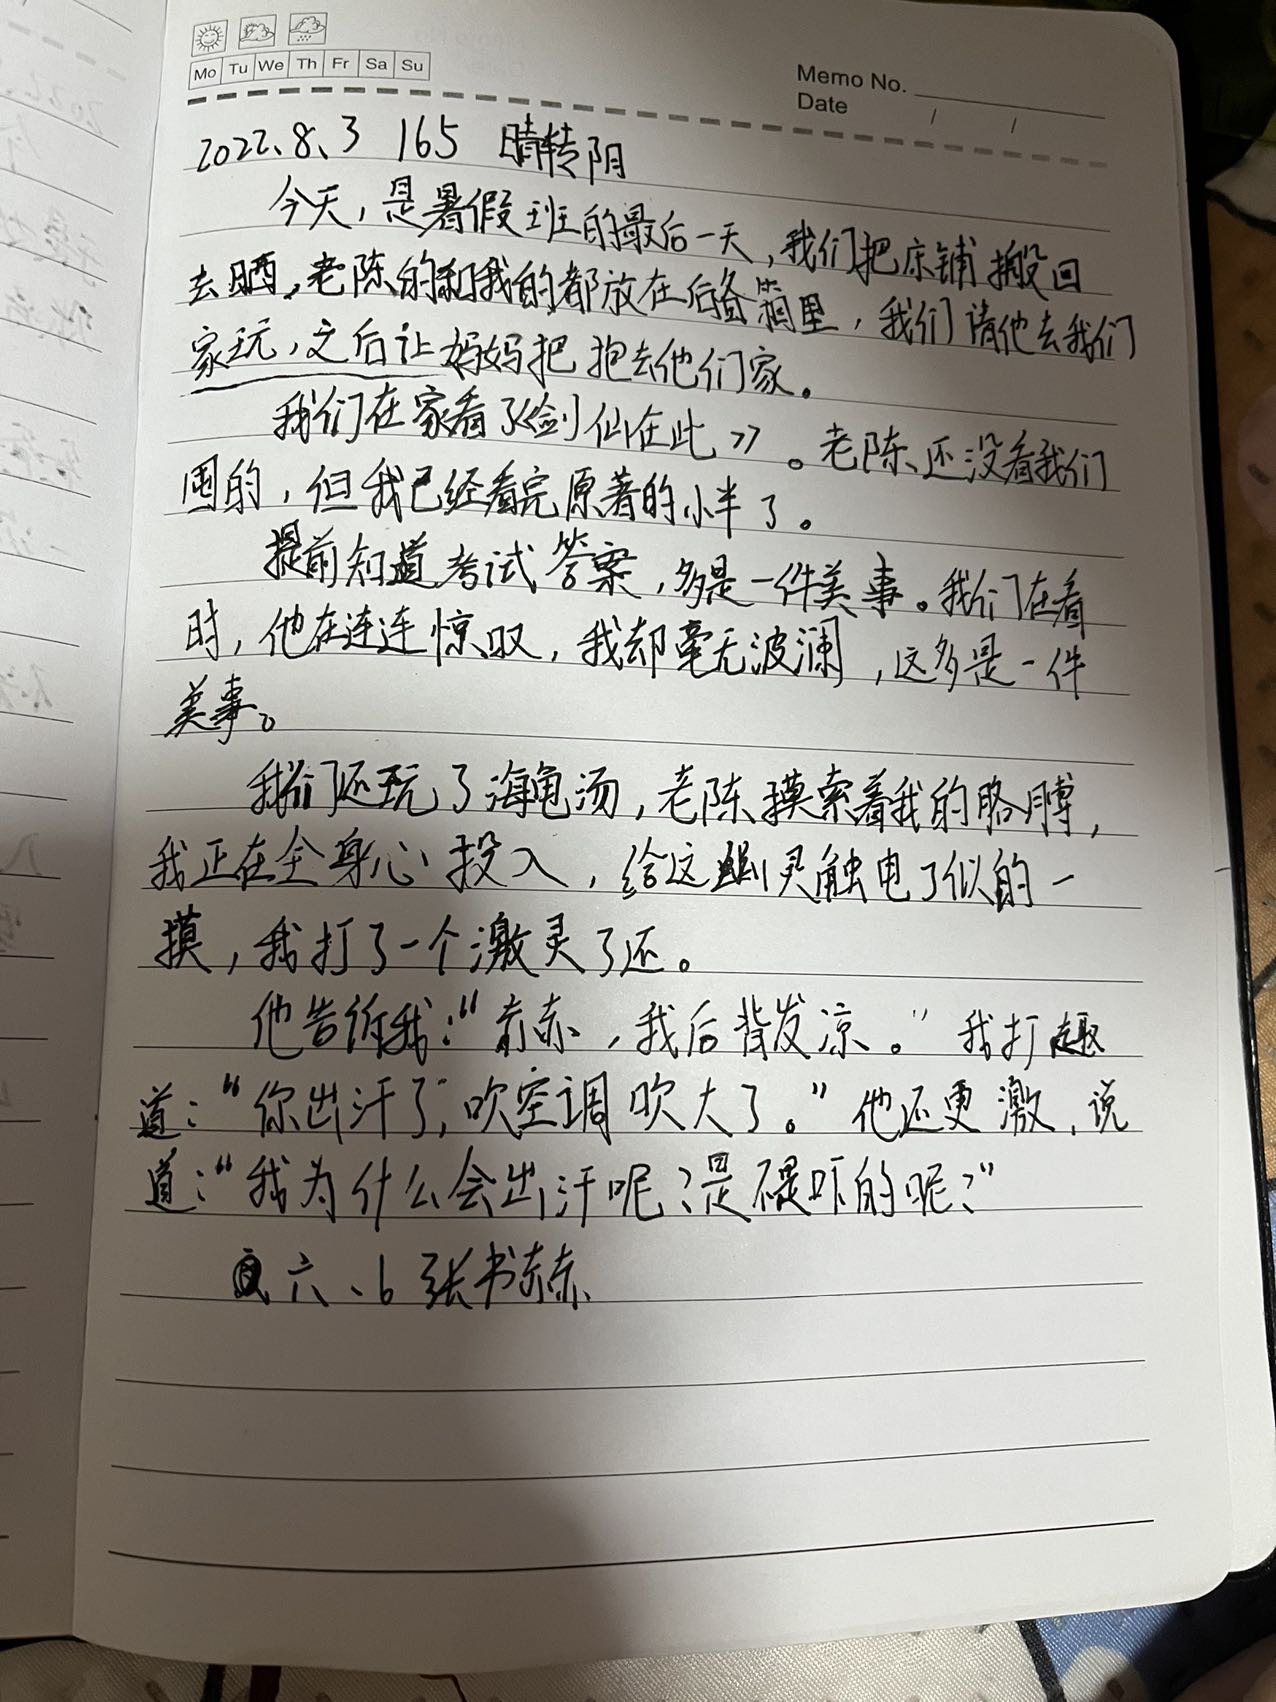 Mo Tu We Th Fr Sa Su
Memo No.
Date / /
2022.8.3 165 晴转阴
今天，是暑假班的最后一天，我们把床铺搬回
去晒，老陈的和我的都放在后备箱里，我们请他去我们
家玩，之后让妈妈把抱去他们家。
我们在家看了《剑仙在此》。老陈还没看我们
围的，但我已经看完原著的小半了。
提前知道考试答案，多是一件美事。我们在看
时，他在连连惊叹，我却毫无波澜，这多是一件
美事。
我们还玩了海龟汤，老陈摸索着我的胳膊，
我正在全身心投入，给这幽灵触电了似的一
摸，我打了一个激灵了还。
他告诉我：“赫，我后背发凉。”我打趣
道：“你出汗了，吹空调吹大了。”他还更激，说
道：“我为什么会出汗呢？是 吓的呢？”
六、6 张书赫